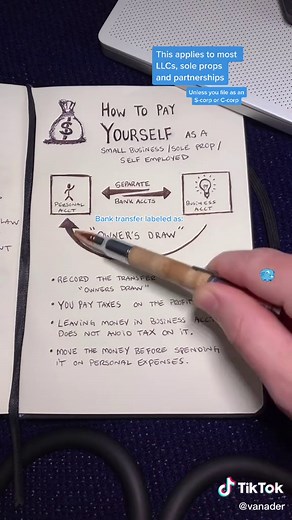 This applies to most
LLCs, sole props
and partnerships
Unless you file as an
S-corp or C-corp
HOW TO PAY
YOURSELF AS A
SMALL BUSINESS / SOLE PROP /
SELF EMPLOYED
PERSONAL
ACCT
SEPARATE
BANK ACCTS
BUSINESS
ACCT
Bank transfer labeled as:
"OWNER'S DRAW"
• RECORD THE TRANSFER
"OWNERS DRAW"
• YOU PAY TAXES ON THE PROFIT
• LEAVING MONEY IN BUSINESS ACC
DOES NOT AVOID TAX ON IT.
• MOVE THE MONEY BEFORE SPENDING
IT ON PERSONAL EXPENSES.
LAW
NT
TikTok
@vanader